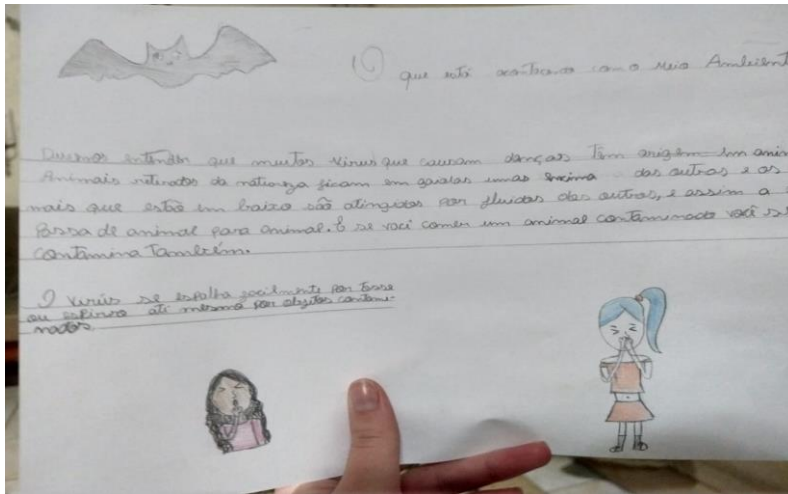 O que está acontecendo com o Meio Ambient
Devemos entender que muitos vírus que causam doenças têm origem em anim
Animais retirados da natureza ficam em gaiolas umas encima das outras e os
mais que estão em baixo são atingidos por fluidos das outras, e assim a
Passa de animal para animal. E se você comer um animal contaminado você s
contamina Também.
O vírus se espalha facilmente por Tosse
ou espirro até mesmo por objetos contami-
nados